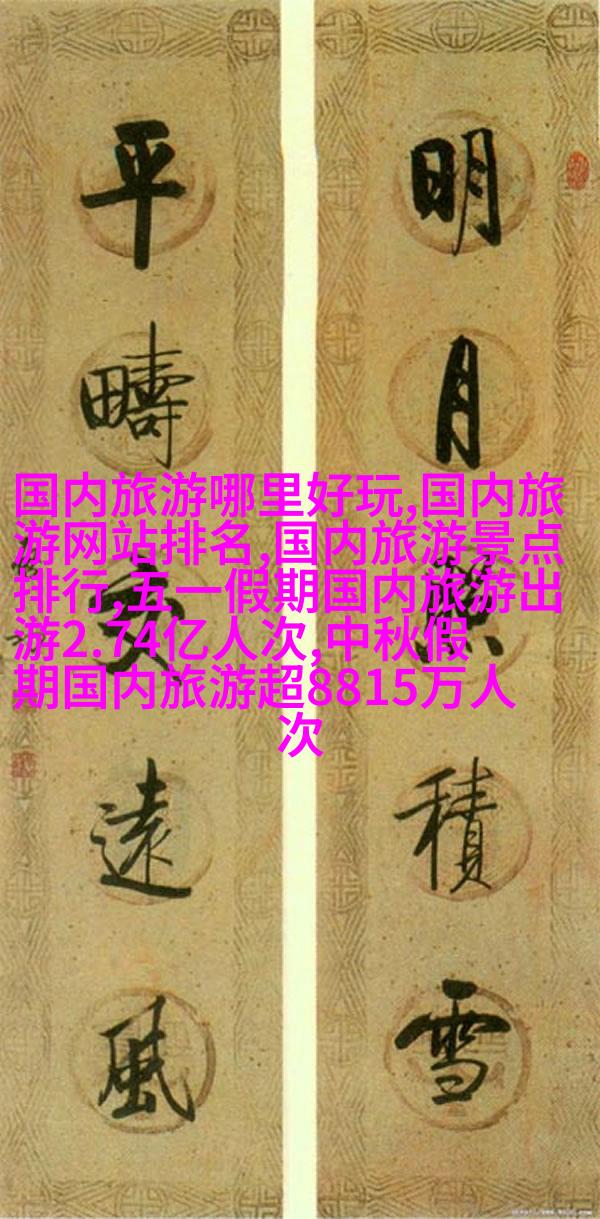 明月照積雪
平疇交遠風
国内旅游哪里好玩,国内旅
游网站排名,国内旅游景点
排行,五一假期国内旅游出
游2.74亿人次,中秋假
期国内旅游超8815万人
次